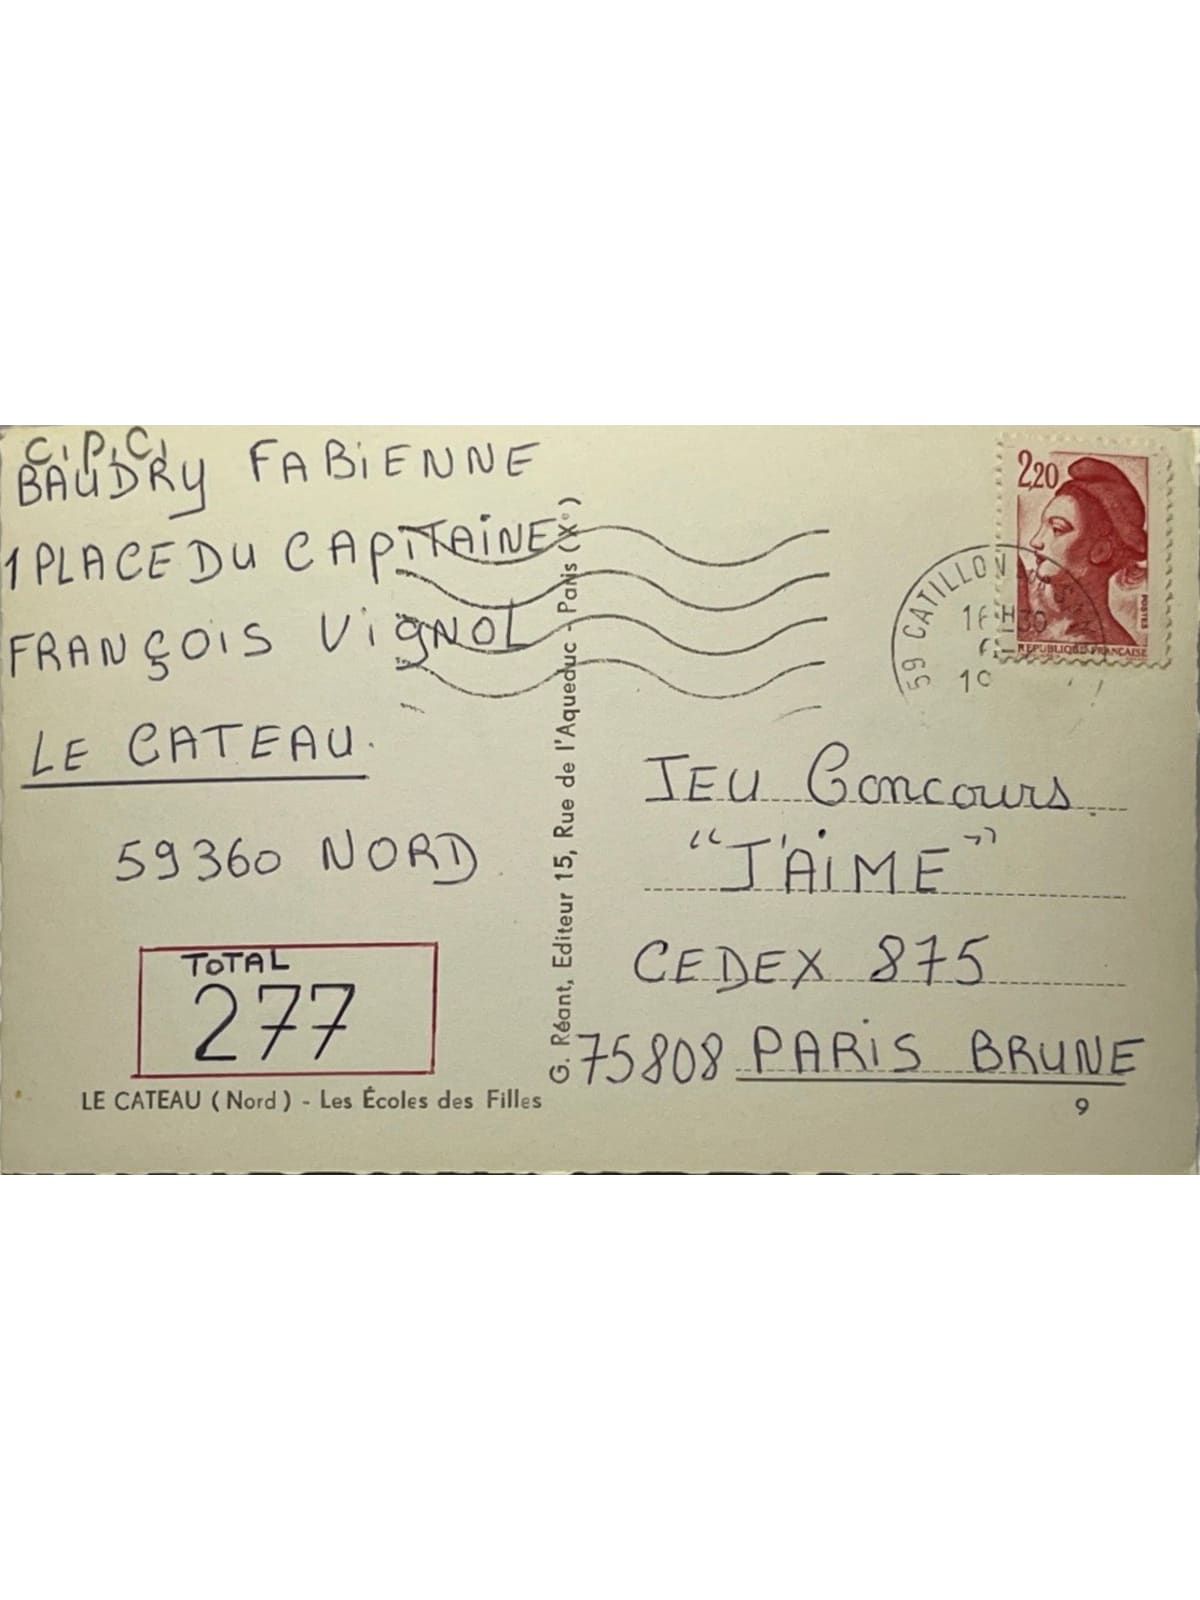 C.P.C.
BAUDRY FABiENNE
1 PLACE DU CAPITAiNE
FRANÇOiS ViGNOL
LE CATEAU.
59360 NORD
TOTAL
277
LE CATEAU (Nord) - Les Écoles des Filles
G. Réant, Editeur 15, Rue de l'Aqueduc - Paris (Xe)
2,20
POSTES
REPUBLIQUE FRANCAISE
59 CATILLON
16H30
JEU Concours
"J'AiME"
CEDEX 875
75808 PARiS BRUNE
9